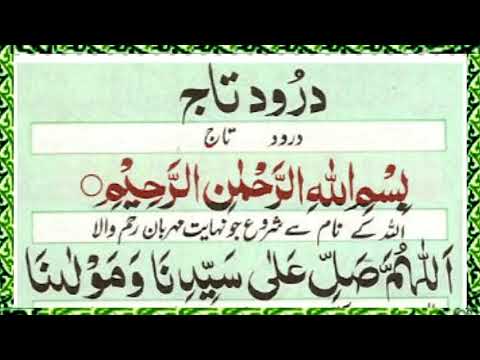 دُرُود تاج
درود تاج
بِسْمِ اللهِ الرَّحْمٰنِ الرَّحِيْمِ○
اللہ کے نام سے شروع جو نہایت مہربان رحم والا
اَللّٰهُمَّ صَلِّ عَلٰى سَيِّدِنَا وَمَوْلٰىنَا